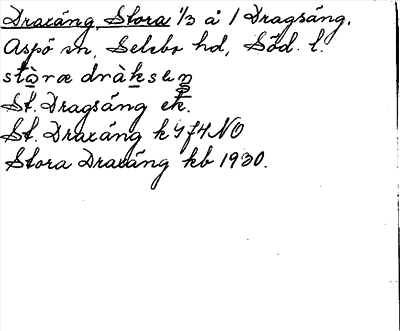 Draxäng, Stora 1/3 å 1 Dragsäng.
Aspö sn, Selebo hd, Söd. l.
stòra dràksaŋ
St. Dragsäng ek.
St. Draxäng k 9 f 4 NO
Stora Draxäng kb 1930.